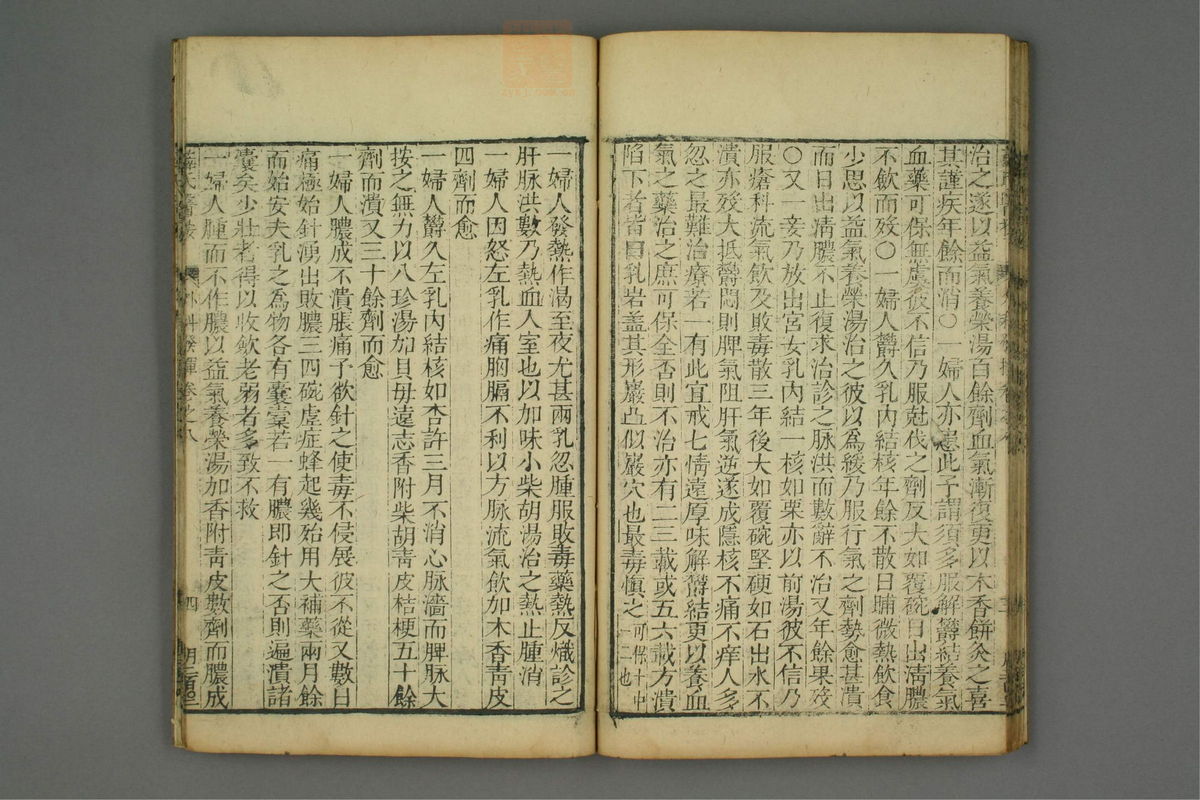 治之遂以益氣養榮湯百餘劑血氣漸復更以木香餅灸之喜
其謹疾年餘而消○一婦人亦患此予謂須多服解欝結養氣
血藥可保無虞彼不信乃服尅伐之劑反大如覆碗日出清膿
不飲而歿○一婦人欝久乳内結核年餘不散日晡微熱飲食
少思以益氣養榮湯治之彼以為緩乃服行氣之劑勢愈甚潰
而日出清膿不止復求治診之脉洪而數辭不治又年餘果歿
○又一妾乃放出宮女乳内結一核如栗亦以前湯彼不信乃
服瘡科流氣飲及敗毒散三年後大如覆碗堅硬如石出水不
潰亦歿大抵欝悶則脾氣阻肝氣逆遂成隱核不痛不痒人多
忽之最難治療若一有此宜戒七情遠厚味解欝結更以養血
氣之藥治之庶可保全否則不治亦有二三載或五六載方潰
陷下者皆曰乳岩盖其形巖凸似巖穴也最毒慎之可保十中一二也
一婦人發熱作渴至夜尤甚兩乳忽腫服敗毒藥熱反熾診之
肝脉洪數乃熱血入室也以加味小柴胡湯治之熱止腫消
一婦人因怒左乳作痛胸膈不利以方脉流氣飲加木香靑皮
四劑而愈
一婦人欝久左乳内結核如杏許三月不消心脉濇而脾脉大
按之無力以八珍湯加貝母遠志香附柴胡靑皮桔梗五十餘
劑而潰又三十餘劑而愈
一婦人膿成不潰脹痛予欲針之使毒不侵展彼不從又數日
痛極始針湧出敗膿三四碗虚症蜂起幾殆用大補藥兩月餘
而始安夫乳之為物各有囊橐若一有膿即針之否則遍潰諸
囊矣少壯者得以收斂老弱者多致不救
一婦人腫而不作膿以益氣養榮湯加香附靑皮數劑而膿成
薛氏醫按 外科發揮卷之八 四